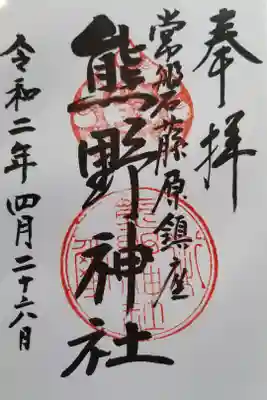 奉拝
常磐藤原鎮座
熊野神社
令和二年四月二十六日